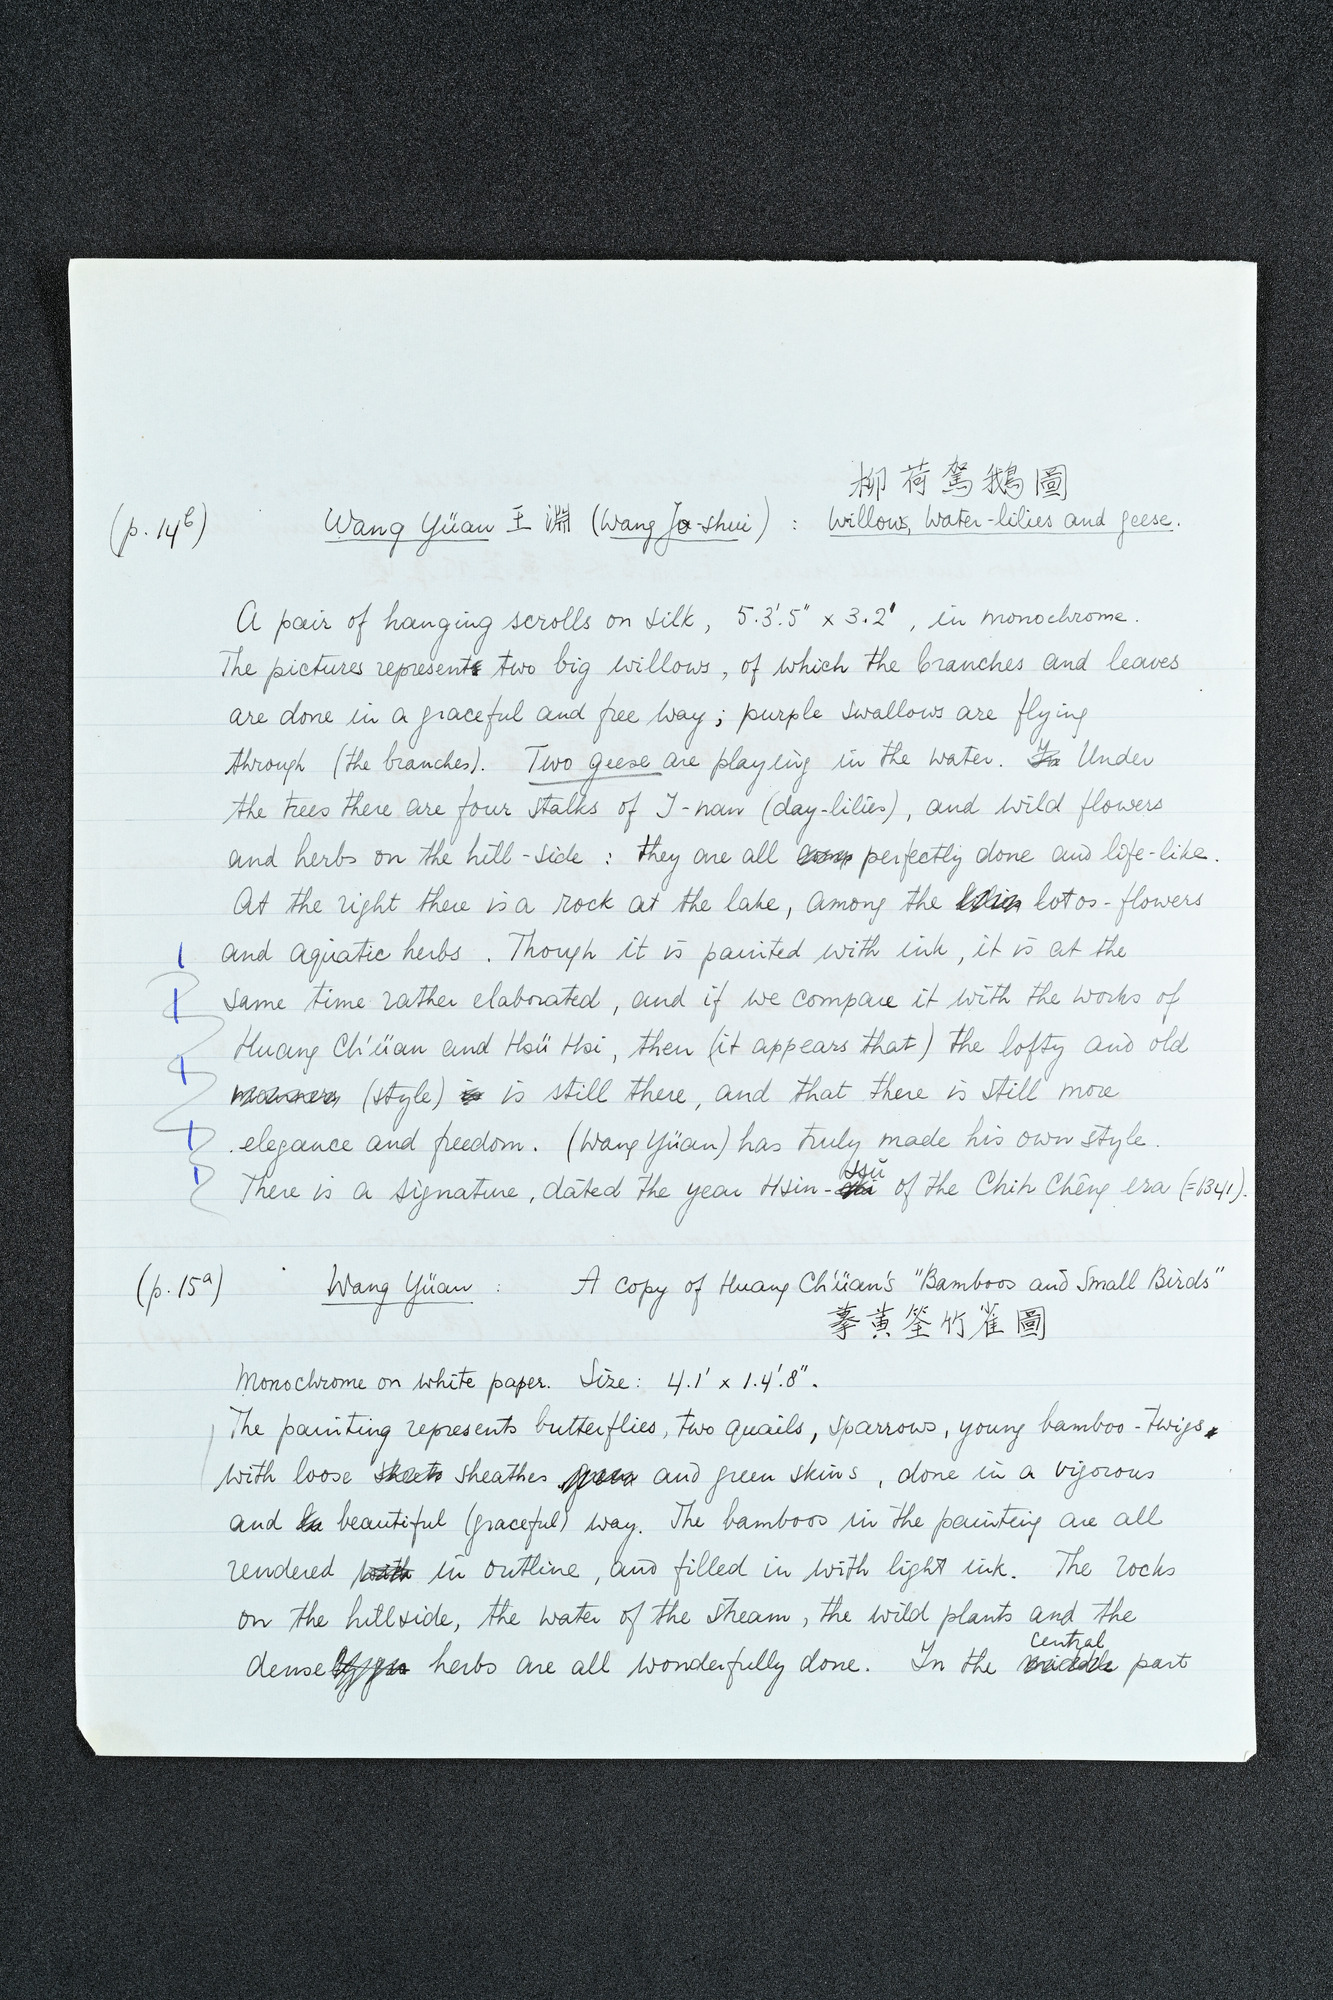 柳荷駕鵝圖
(p. 14b) Wang Yüan 王淵 (Wang Jo-shui) : Willows, Water-lilies and geese.
A pair of hanging scrolls on silk, 5.3'.5" x 3.2', in monochrome.
The pictures represent two big willows, of which the branches and leaves
are done in a graceful and free way; purple swallows are flying
through (the branches). Two geese are playing in the water. Under
the trees there are four stalks of I-nan (day-lilies), and wild flowers
and herbs on the hill-side : they are all perfectly done and life-like.
At the right there is a rock at the lake, among the lotos-flowers
and aquatic herbs. Though it is painted with ink, it is at the
same time rather elaborated, and if we compare it with the works of
Huang Ch'üan and Hsü Hsi, then (it appears that) the lofty and old
manners (style) is still there, and that there is still more
elegance and freedom. (Wang Yüan) has truly made his own style.
There is a signature, dated the year Hsin-ssŭ of the Chih Chêng era (=1341).
(p. 15a) Wang Yüan : A copy of Huang Ch'üan's "Bamboos and Small Birds"
摹黄筌竹雀圖
Monochrome on white paper. Size: 4.1' x 1.4'.8".
The painting represents butterflies, two quails, sparrows, young bamboo-twigs
with loose sheathes and green skins, done in a vigorous
and beautiful (graceful) way. The bamboos in the painting are all
rendered with in outline, and filled in with light ink. The rocks
on the hillside, the water of the stream, the wild plants and the
dense herbs are all wonderfully done. In the middle central part